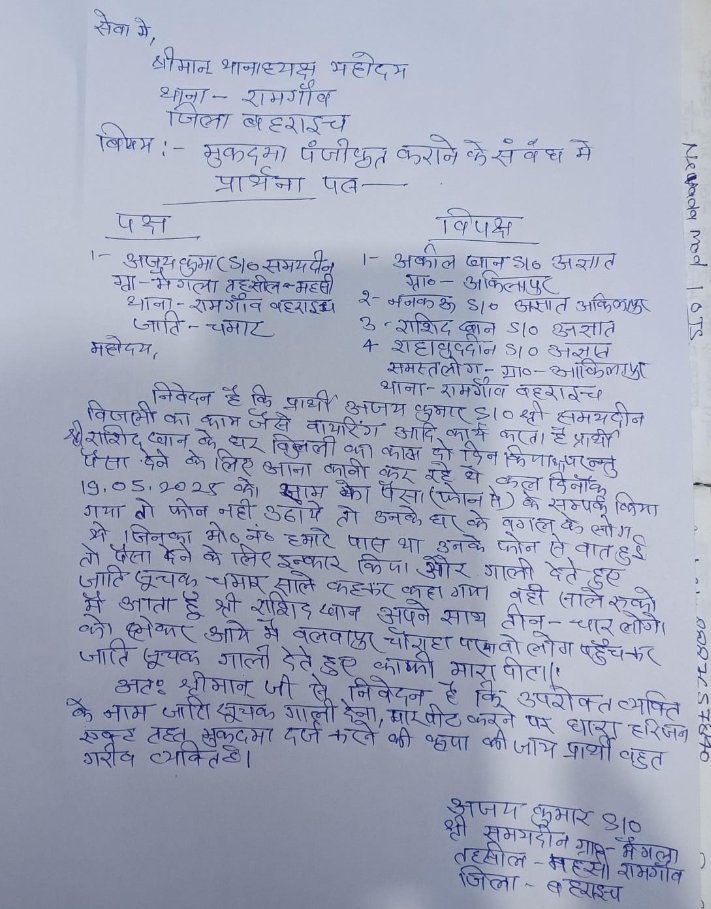 सेवा मे,
श्रीमान थानाध्यक्ष महोदय
थाना - रामगाँव
जिला बहराइच
बिषय :- मुकदमा पंजीकृत कराने के संबंध मे
प्रार्थना पत्र —
पक्ष
विपक्ष
1- अजय कुमार S/o समयदीन
ग्रा - मैगला तहसील - महसी
थाना - रामगाँव बहराइच
जाति - चमार
1- अकील खान S/o असात
ग्रा० - अकिलापुर
2- ननकऊ S/o असात अकिलापुर
3 - राशिद खान S/o असात
4 शहाबुददीन S/o असात
समस्त लोग - ग्रा० - अकिलापुर
थाना - रामगाँव बहराइच
महोदय,
निवेदन है कि प्रार्थी अजय कुमार S/o श्री समयदीन
बिजली का काम जैसे वायरिंग आदि कार्य करता है प्रार्थी
श्री राशिद खान के घर बिजली का काम दो दिन किया परन्तु
पैसा देने के लिए आना कानी कर रहे थे कल दिनाँक
19.05.2025 को साम को पैसा (फोन पे) के सम्पर्क किया
गया तो फोन नही उठाये तो उनके घर के बगल के लोग
थे जिनका मो० नं० हमारे पास था उनके फोन से बात हुई
तो पैसा देने के लिए इन्कार किया और गाली देते हुए
जाति सूचक चमार साले कहकर कहा गया वही साले रुको
मै आता हूँ श्री राशिद खान अपने साथ तीन - चार लोगो
को लेकर आये मै वलवापुर चौराहा पर वो लोग पहुँचकर
जाति सूचक गाली देते हुए काफी मारा पीटा।
अतः श्रीमान जी से निवेदन है कि उपरोक्त व्यक्ति
के नाम जाति सूचक गाली देना, मारपीट करने पर धारा हरिजन
एक्ट तहत मुकदमा दर्ज करने की कृपा की जाय प्रार्थी बहुत
गरीब व्यक्ति है।
अजय कुमार S/o
श्री समयदीन ग्राम - मैगला
तहसील - महसी रामगाँव
जिला - बहराइच